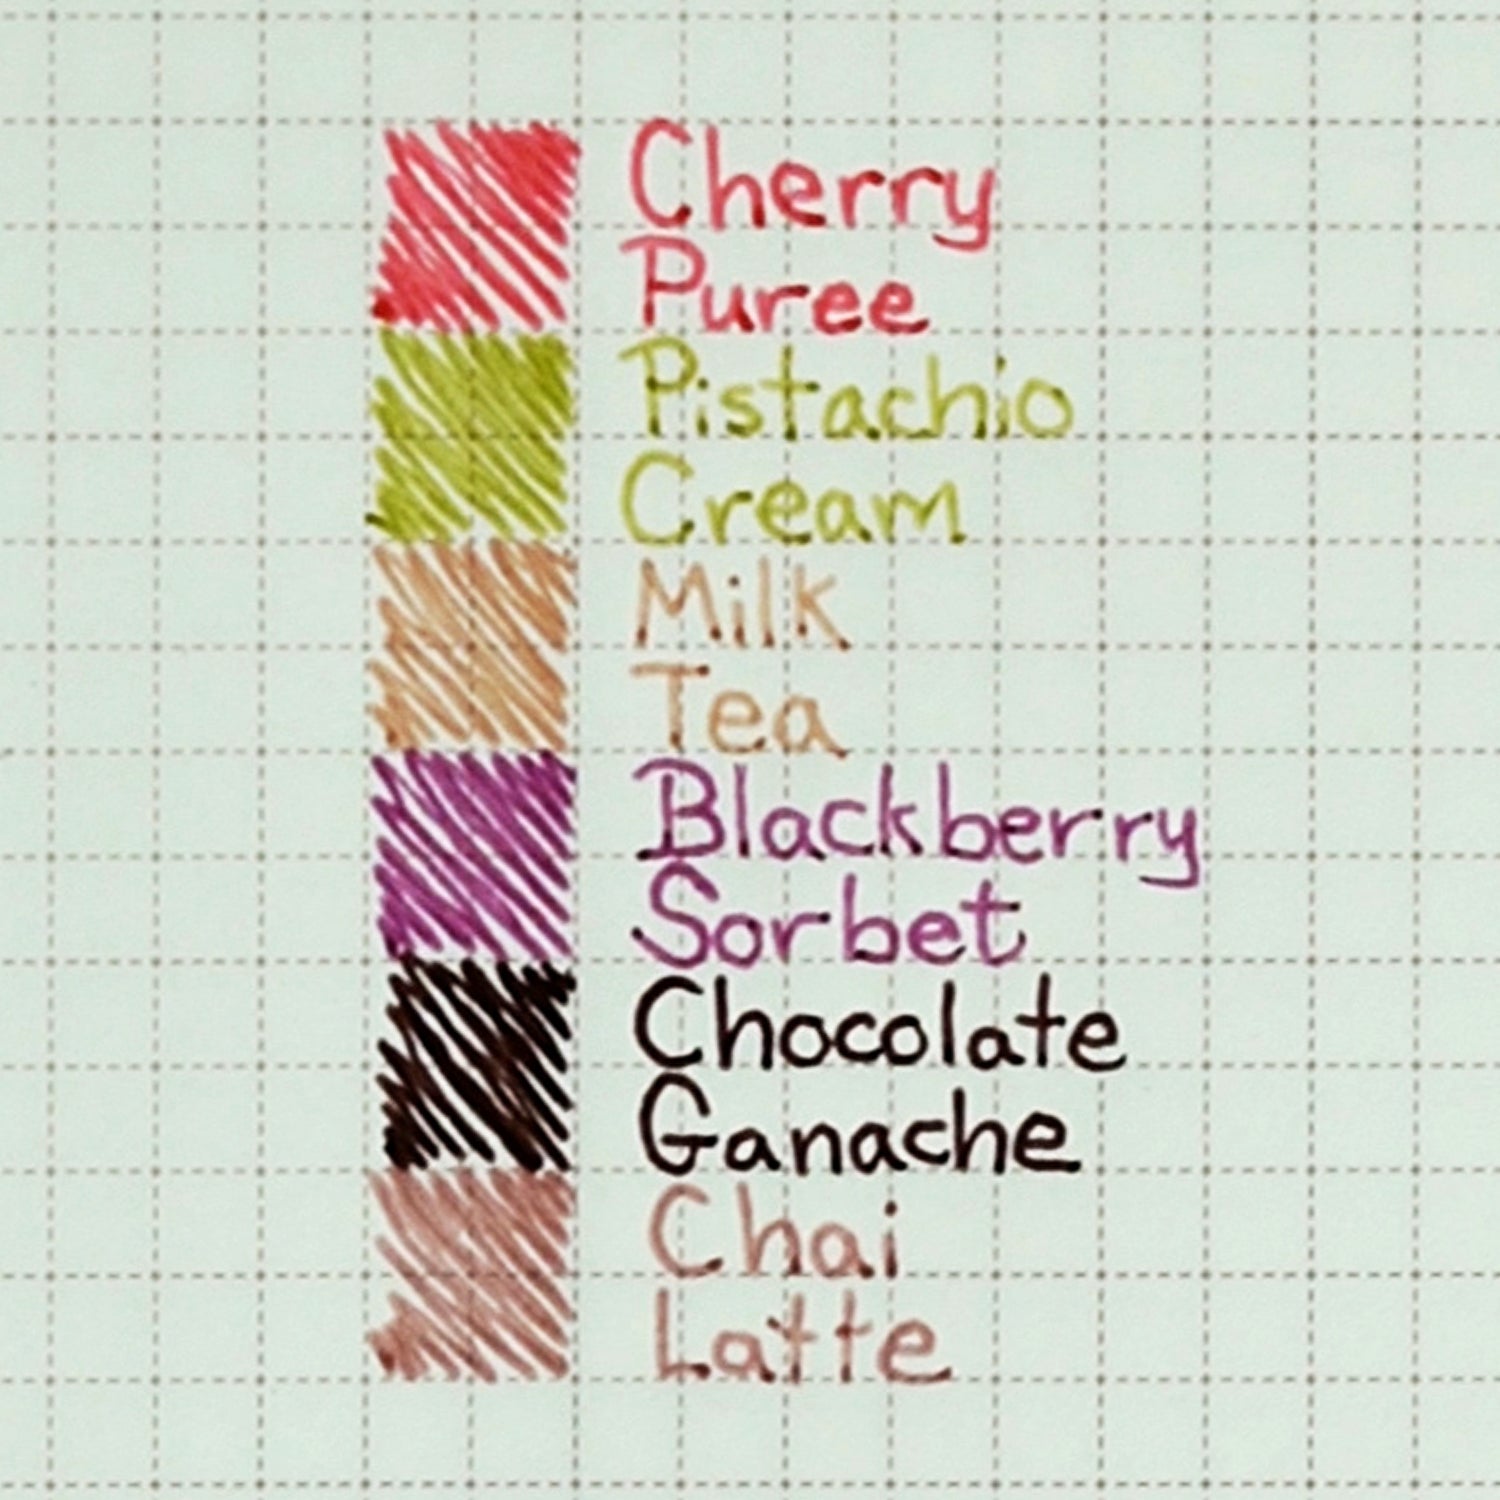 Cherry
Puree
Pistachio
Cream
Milk
Tea
Blackberry
Sorbet
Chocolate
Ganache
Chai
Latte